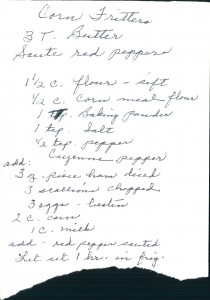 Corn Fritters
3 T. Butter
Saute red peppers
1 1/2 c. flour - sift
1/2 c. corn meal flour
1 Baking Powder
1 tsp. Salt
1/2 tsp. pepper
Cayenne pepper
add:
3 oz. piece ham diced
3 scallions chopped
3 eggs - beaten
2 c. corn
1 c. milk
add - red pepper sauted
Let set 1 hr. in frig.